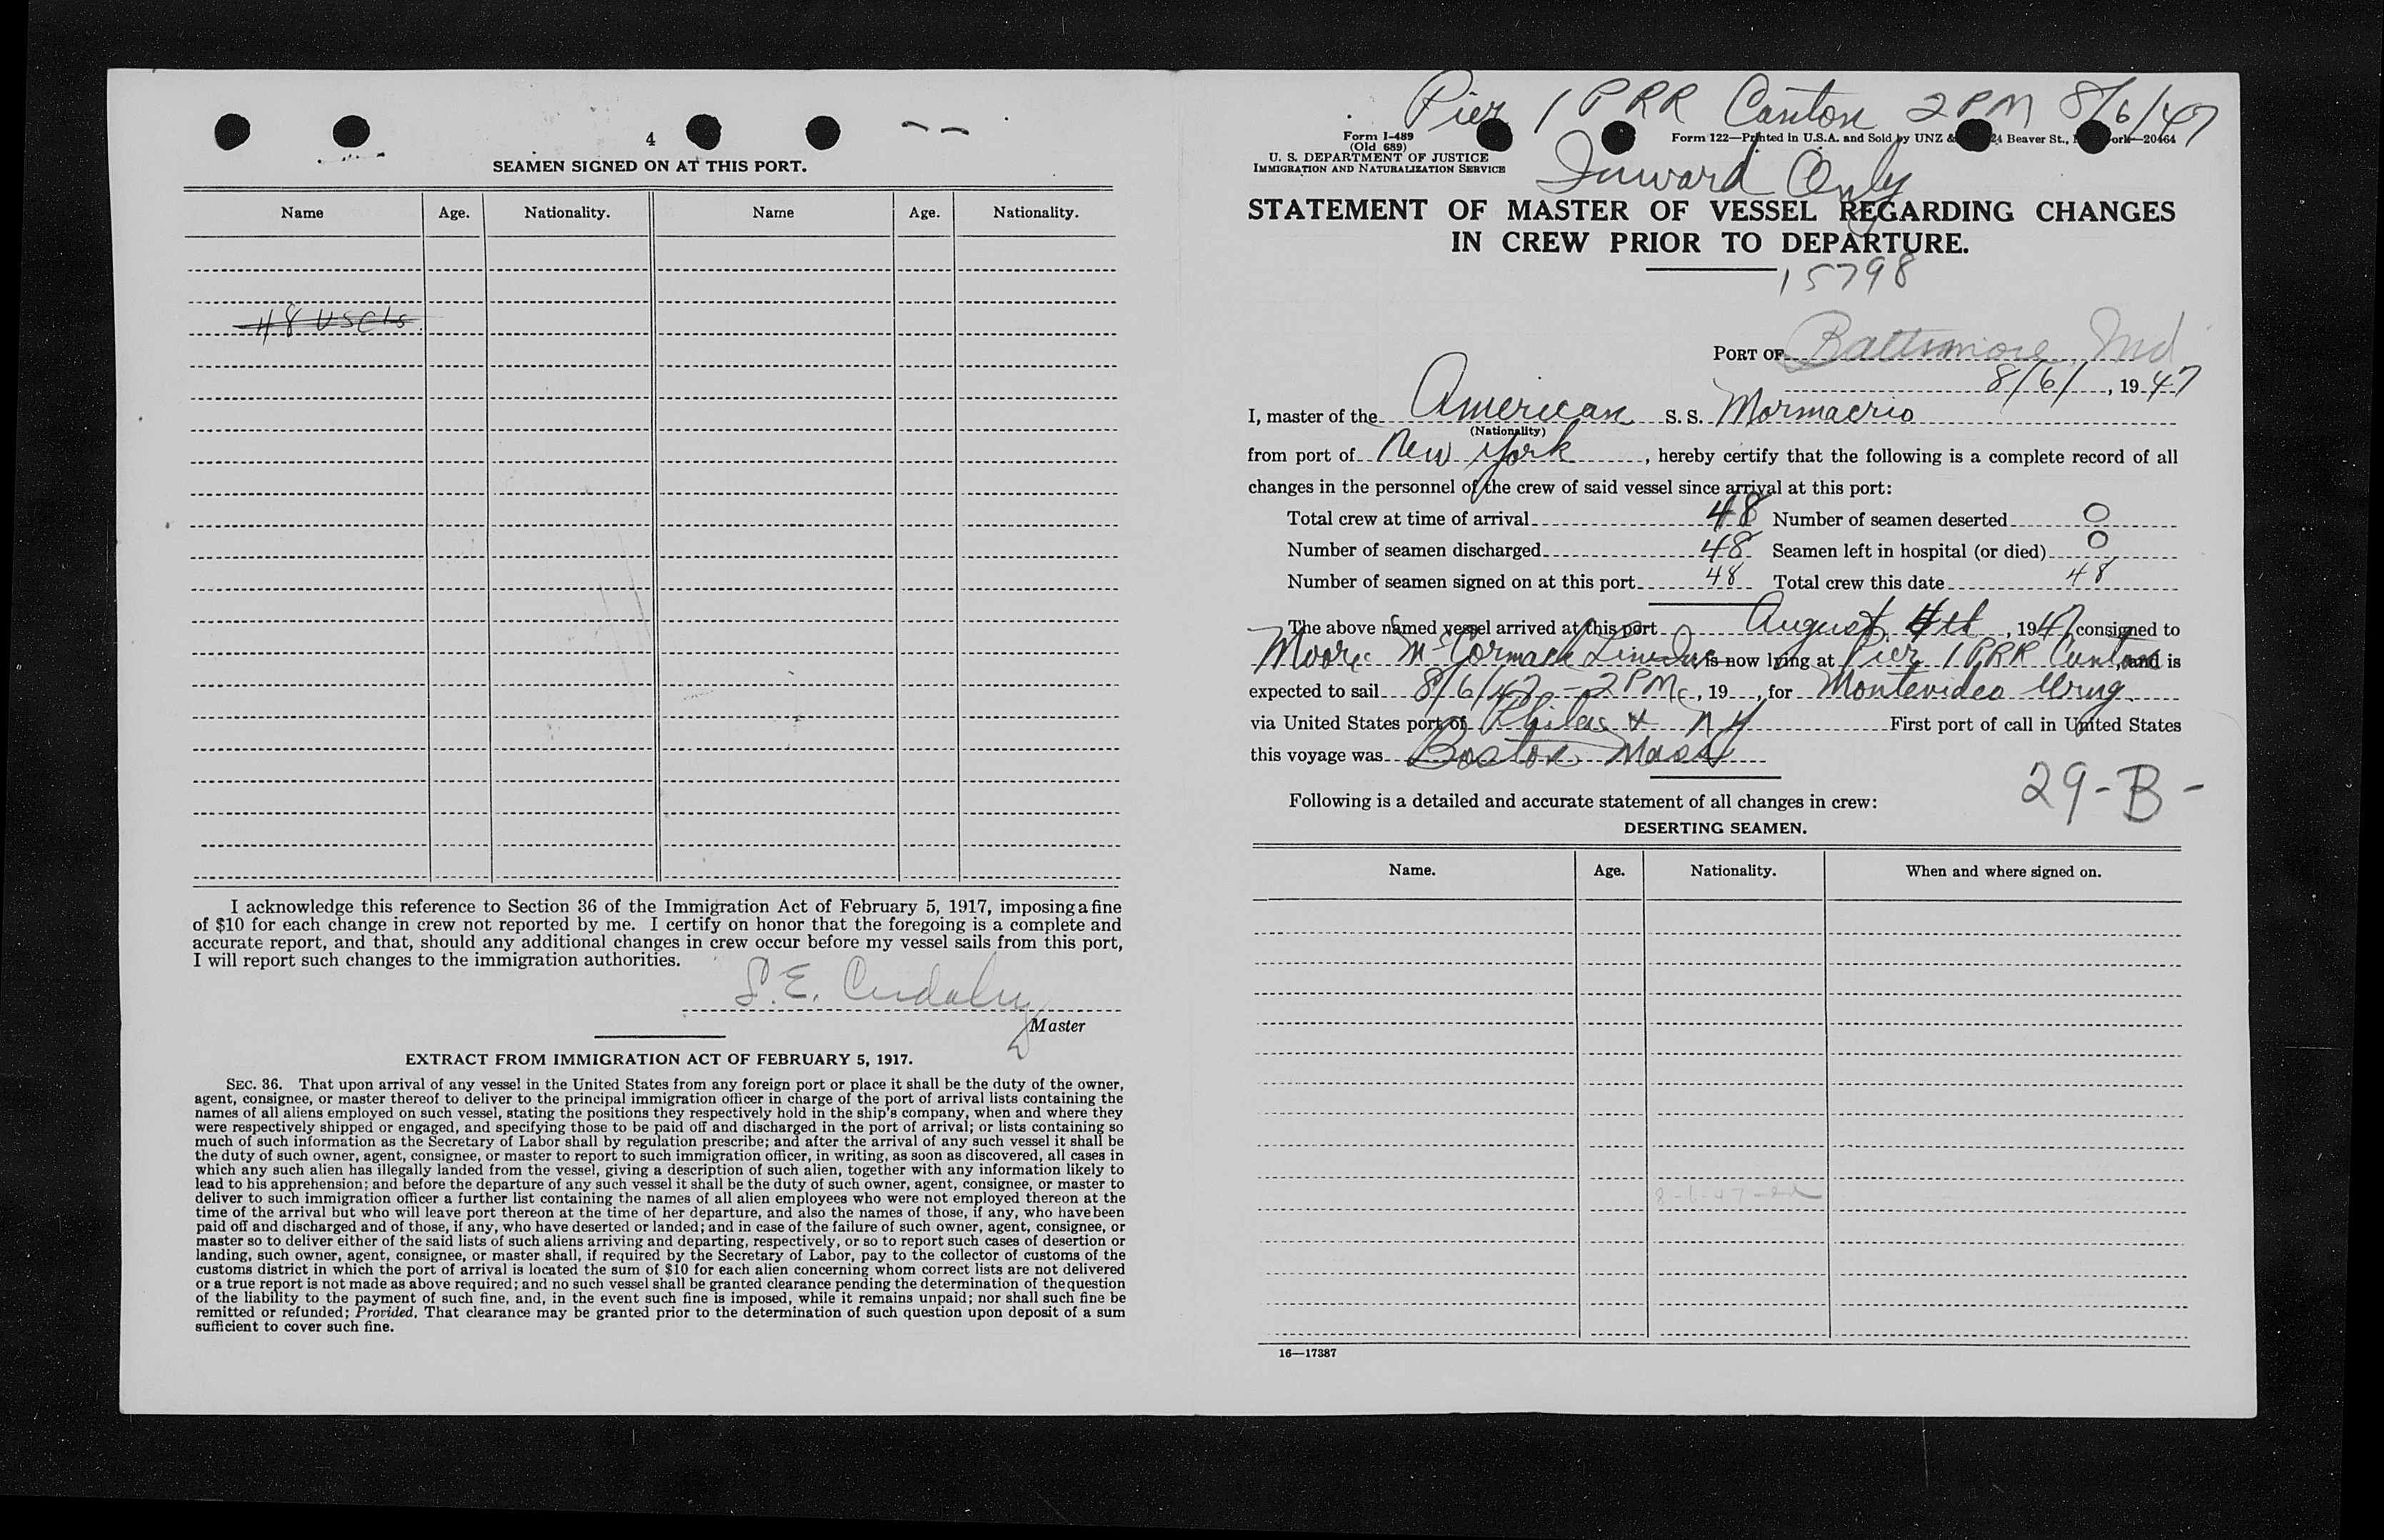 4
SEAMEN SIGNED ON AT THIS PORT.
Name Age. Nationality. Name Age. Nationality.
48 USCts
I acknowledge this reference to Section 36 of the Immigration Act of February 5, 1917, imposing a fine
of $10 for each change in crew not reported by me. I certify on honor that the foregoing is a complete and
accurate report, and that, should any additional changes in crew occur before my vessel sails from this port,
I will report such changes to the immigration authorities.
Master
EXTRACT FROM IMMIGRATION ACT OF FEBRUARY 5, 1917.
SEC. 36. That upon arrival of any vessel in the United States from any foreign port or place it shall be the duty of the owner,
agent, consignee, or master thereof to deliver to the principal immigration officer in charge of the port of arrival lists containing the
names of all aliens employed on such vessel, stating the positions they respectively hold in the ship's company, when and where they
were respectively shipped or engaged, and specifying those to be paid off and discharged in the port of arrival; or lists containing so
much of such information as the Secretary of Labor shall by regulation prescribe; and after the arrival of any such vessel it shall be
the duty of such owner, agent, consignee, or master to report to such immigration officer, in writing, as soon as discovered, all cases in
which any such alien has illegally landed from the vessel, giving a description of such alien, together with any information likely to
lead to his apprehension; and before the departure of any such vessel it shall be the duty of such owner, agent, consignee, or master to
deliver to such immigration officer a further list containing the names of all alien employees who were not employed thereon at the
time of the arrival but who will leave port thereon at the time of her departure, and also the names of those, if any, who have been
paid off and discharged and of those, if any, who have deserted or landed; and in case of the failure of such owner, agent, consignee, or
master so to deliver either of the said lists of such aliens arriving and departing, respectively, or so to report such cases of desertion or
landing, such owner, agent, consignee, or master shall, if required by the Secretary of Labor, pay to the collector of customs of the
customs district in which the port of arrival is located the sum of $10 for each alien concerning whom correct lists are not delivered
or a true report is not made as above required; and no such vessel shall be granted clearance pending the determination of the question
of the liability to the payment of such fine, and, in the event such fine is imposed, while it remains unpaid; nor shall such fine be
remitted or refunded; Provided, That clearance may be granted prior to the determination of such question upon deposit of a sum
sufficient to cover such fine.
Pier 1 PRR Canton 2 PM 8/6/47
Form I-489
(Old 689)
U. S. DEPARTMENT OF JUSTICE
IMMIGRATION AND NATURALIZATION SERVICE
Form 122—Printed in U.S.A. and Sold by UNZ & 24 Beaver St., 20464
Inward Only
STATEMENT OF MASTER OF VESSEL REGARDING CHANGES
IN CREW PRIOR TO DEPARTURE.
15798
PORT OF Baltimore, Md
8/6/, 1947
I, master of the American S. S. Mormacrio
(Nationality)
from port of New York, hereby certify that the following is a complete record of all
changes in the personnel of the crew of said vessel since arrival at this port:
Total crew at time of arrival 48 Number of seamen deserted 0
Number of seamen discharged 48 Seamen left in hospital (or died) 0
Number of seamen signed on at this port 48 Total crew this date 48
The above named vessel arrived at this port August 4th, 1947, consigned to
Moore McCormack Lines Inc is now lying at Pier 1 PRR Canton, and is
expected to sail 8/6/47 - 2 PM, 19, for Montevideo Urug
via United States port of Phila & NY First port of call in United States
this voyage was Boston Mass
29-B-
Following is a detailed and accurate statement of all changes in crew:
DESERTING SEAMEN.
Name. Age. Nationality. When and where signed on.
16—17387